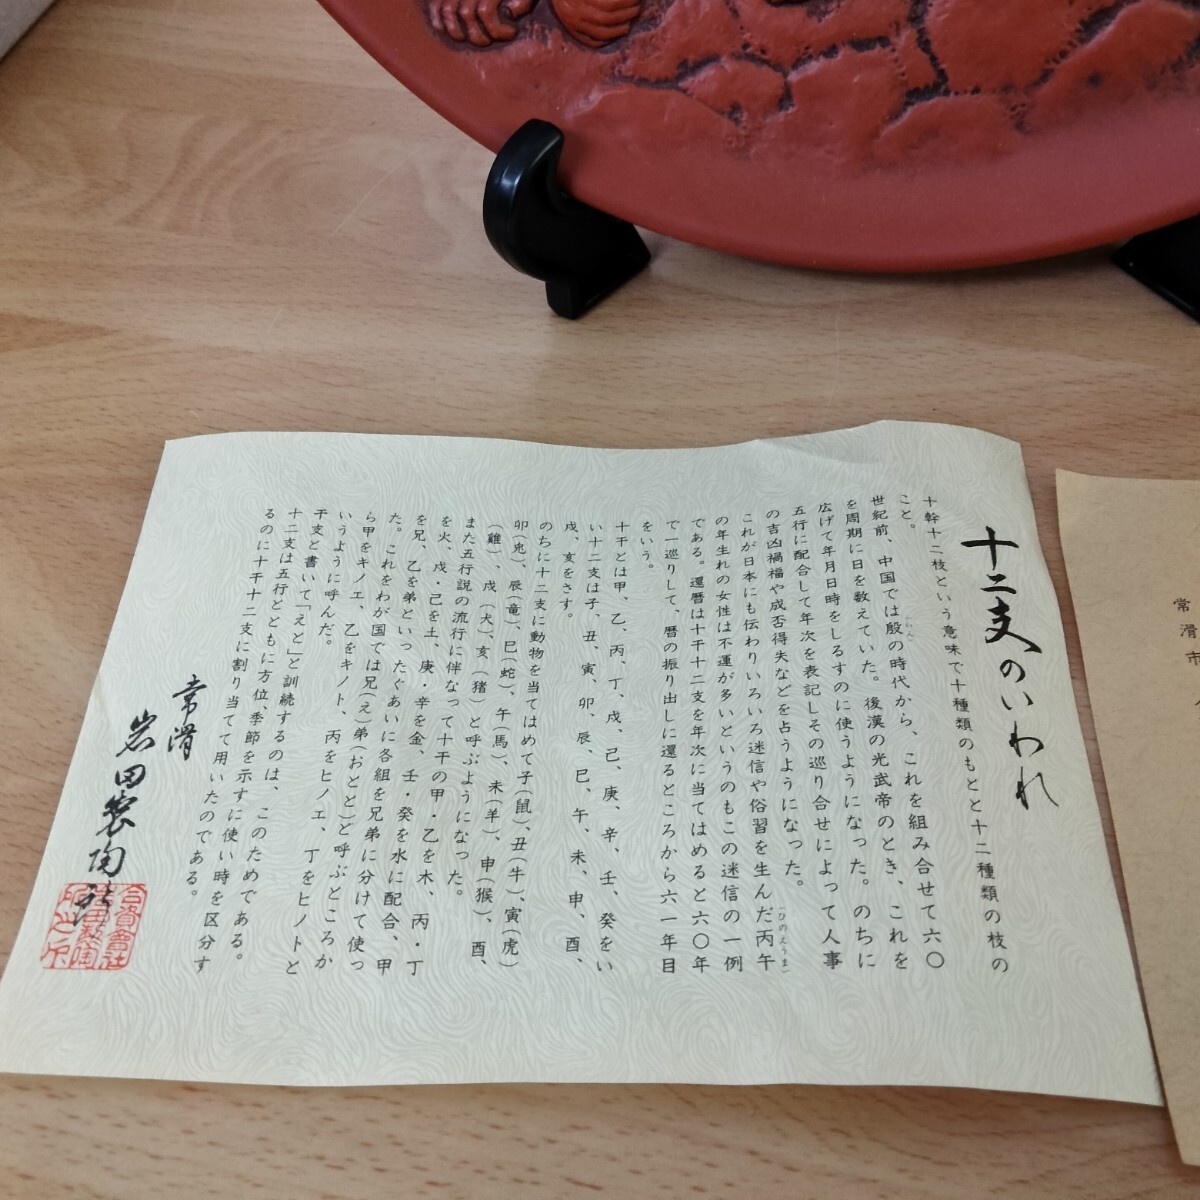 十二支のいわれ
十幹十二枝という意味で十種類のもとと十二種類の枝の
こと。
世紀前、中国では殷の時代から、これを組み合せて六〇
を周期に日を数えていた。後漢の光武帝のとき、これを
広げて年月日時をしるすのに使うようになった。のちに
五行に配合して年次を表記しその巡り合せによって人事
の吉凶禍福や成否得失などを占うようになった。
これが日本にも伝わりいろいろ迷信や俗習を生んだ丙午
の年生れの女性は不運が多いというのもこの迷信の一例
である。還暦は十干十二支を年次に当てはめると六〇年
で一巡りして、暦の振り出しに還るところから六一年目
をいう。
十干とは甲、乙、丙、丁、戊、己、庚、辛、壬、癸をい
い十二支は子、丑、寅、卯、辰、巳、午、未、申、酉、
戌、亥をさす。
のちに十二支に動物を当てはめて子(鼠)、丑(牛)、寅(虎)
卯(兎)、辰(竜)、巳(蛇)、午(馬)、未(羊)、申(猴)、酉、
(雞)、戌(犬)、亥(猪)と呼ぶようになった。
また五行説の流行に伴なって十干の甲・乙を木、丙・丁
を火、戊・己を土、庚・辛を金、壬・癸を水に配合、甲
を兄、乙を弟といったぐあいに各組を兄弟に分けて使っ
た。これをわが国では兄(え)弟(おとと)と呼ぶところか
ら甲をキノエ、乙をキノト、丙をヒノエ、丁をヒノトと
いうように呼んだ。
干支と書いて「えと」と訓続するのは、このためである。
十二支は五行とともに方位、季節を示すに使い時を区分す
るのに十干十二支に割り当てて用いたのである。
常滑
岩田製陶所
常滑市